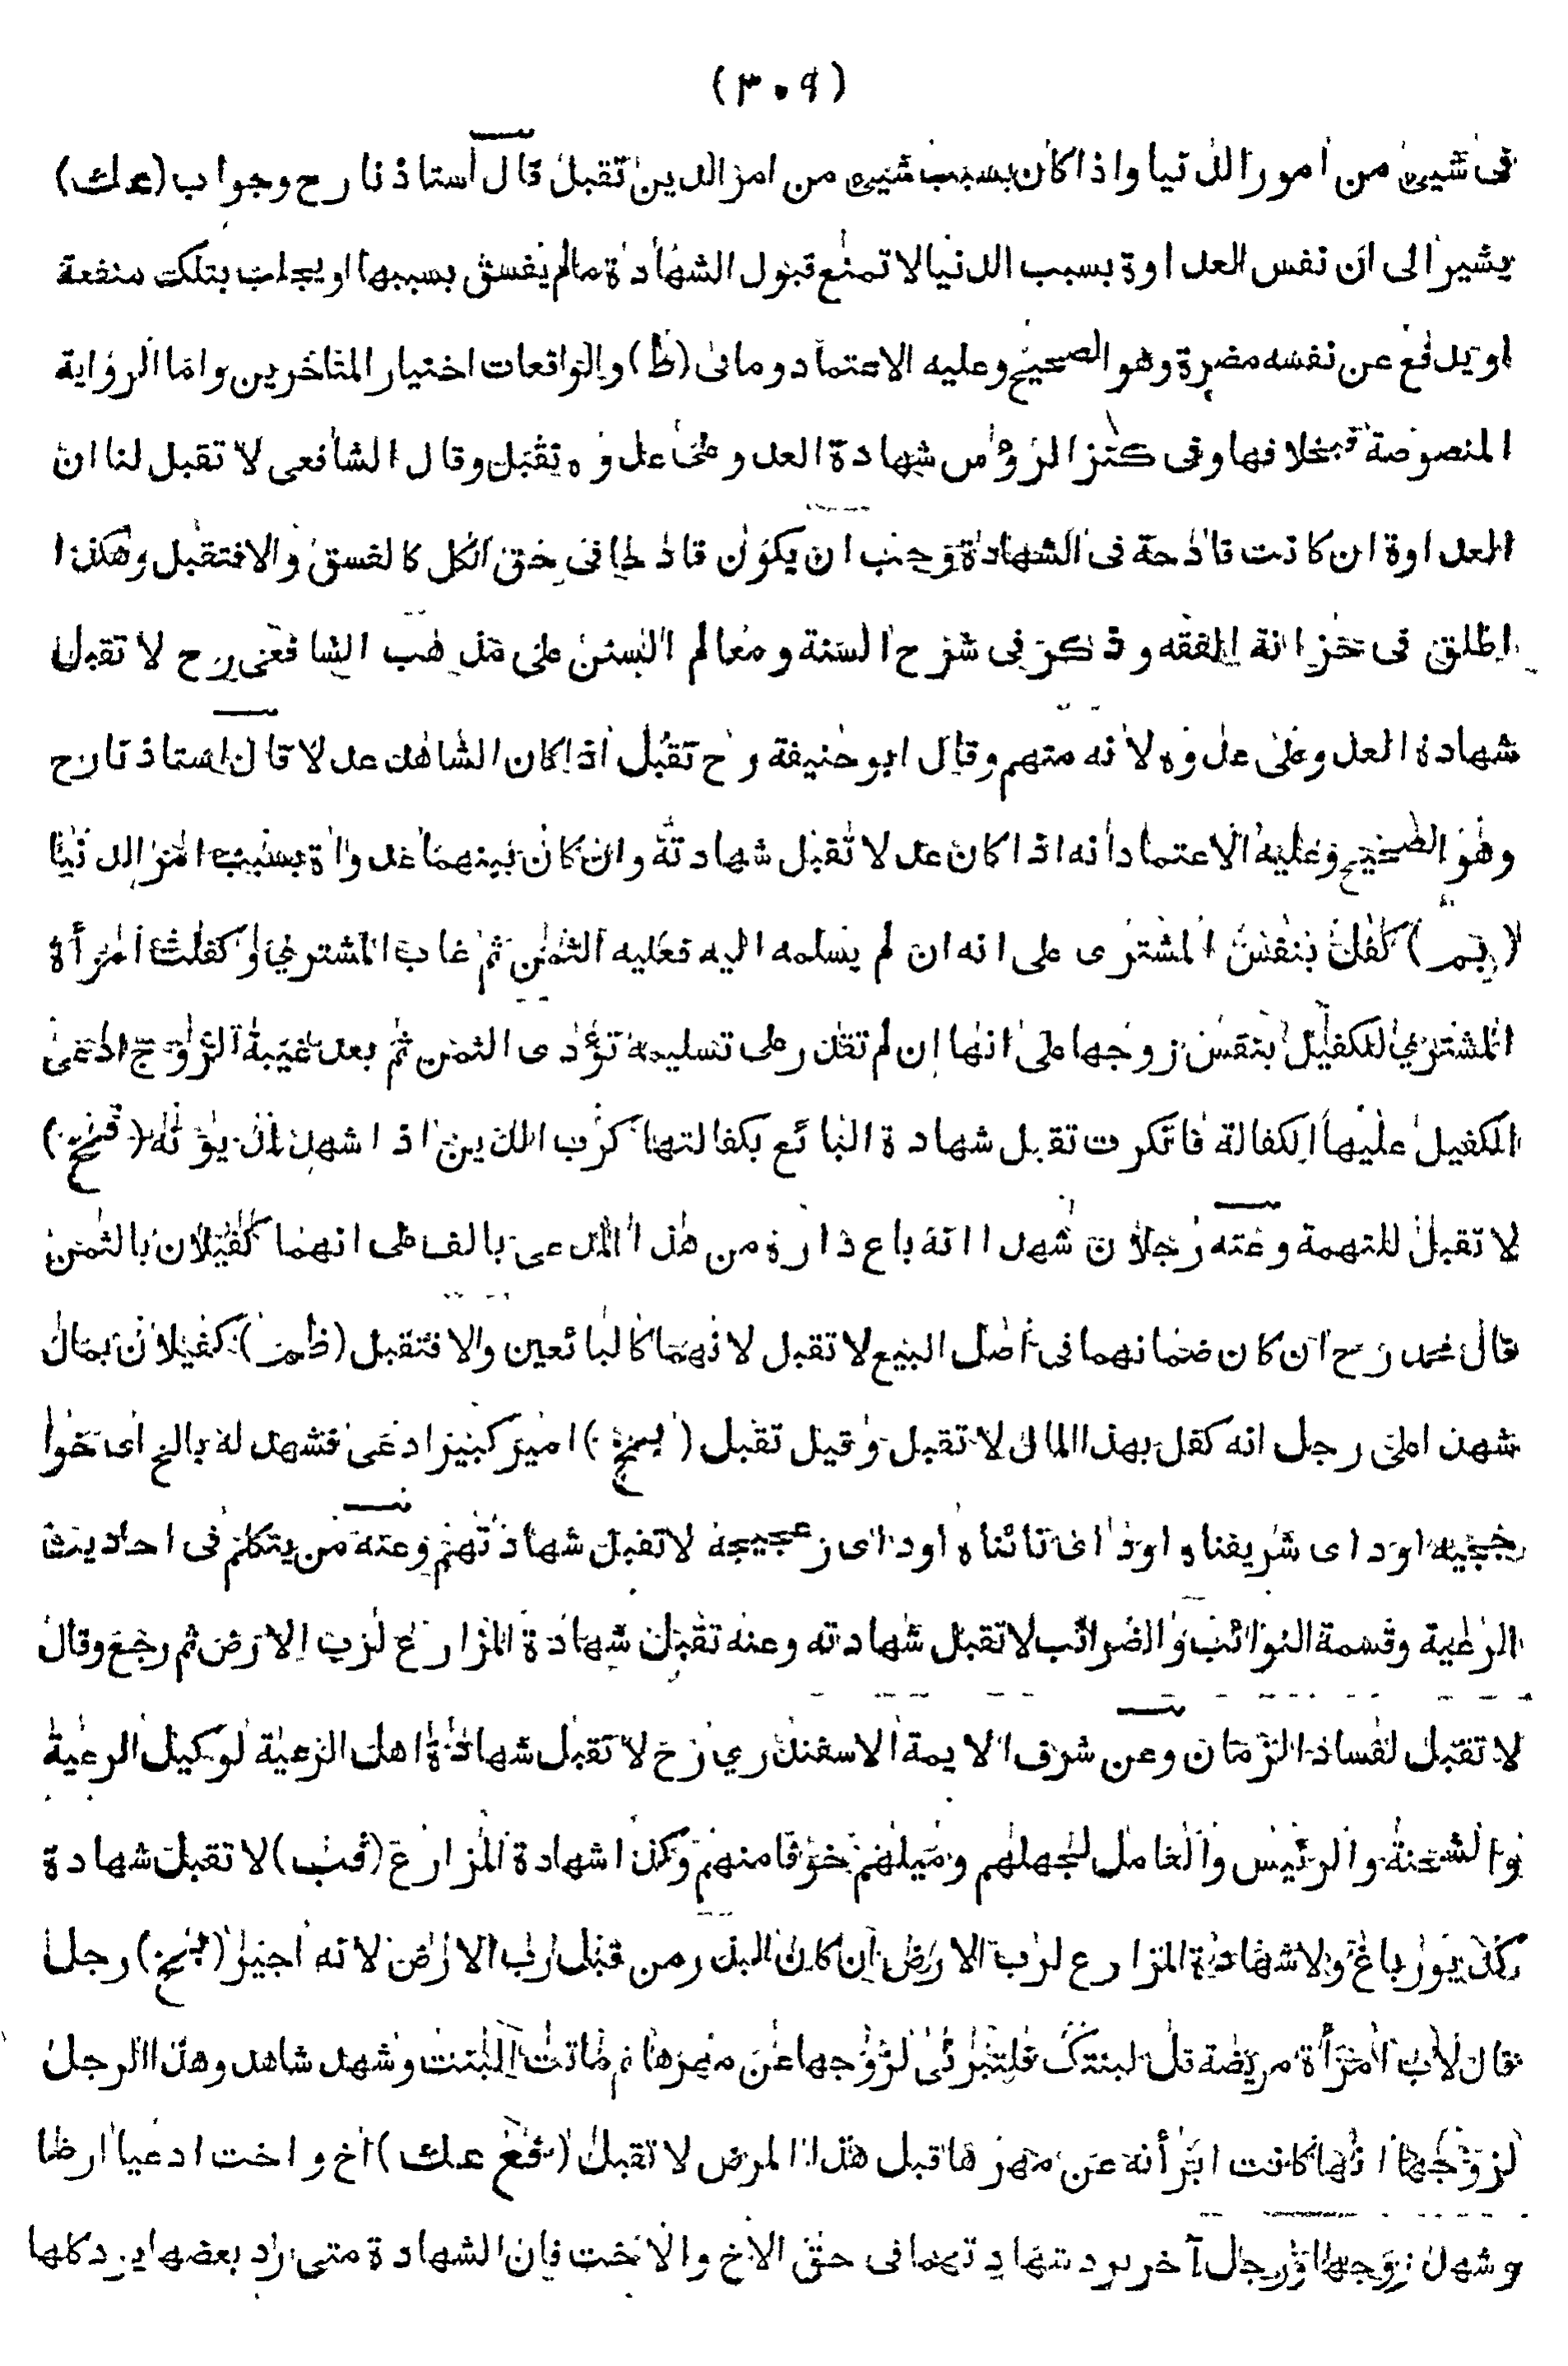 (٣٠٩)
فى شيئ من امور الدنيا واذا كان بسبب شيئ من امر الدين تقبل قال استاذنا رح وجواب (عك)
يشير الى ان نفس العداوة بسبب الدنيا لا تمنع قبول الشهادة مالم يفسق بسببها او يجلب بتلك منفعة
او يدفع عن نفسه مضرة وهو الصحيح وعليه الاعتماد وما فى (ظ) والواقعات اختيار المتاخرين واما الرواية
المنصوصة فبخلافها وفى كنز الرؤس شهادة العدو على عدوه تقبل وقال الشافعى لا تقبل لنا ان
العداوة ان كانت قادحة فى الشهادة وجب ان يكون قادحا فى حق الكل كالفسق والا فتقبل وهكذا
اطلق فى خزانة الفقه وذكر فى شرح السنة ومعالم السنن على مذهب الشافعى رح لا تقبل
شهادة العدو على عدوه لانه متهم وقال ابو حنيفة رح تقبل اذا كان الشاهد عدلا قال استاذنا رح
وهو الصحيح وعليه الاعتماد انه اذا كان عدلا تقبل شهادته وان كان بينهما عداوة بسبب امر الدنيا
(بم) كفل بنفس المشترى على انه ان لم يسلمه اليه فعليه الثمن ثم غاب المشتري وكفلت امرأة
المشتري للكفيل بنفس زوجها على انها ان لم تقدر على تسليمه تؤدى الثمن ثم بعد غيبة الزوج ادعى
الكفيل عليها الكفالة فانكرت تقبل شهادة البائع بكفالتها كرب الدين اذا شهد لمديونه (فنخ)
لا تقبل للتهمة وعنه رجلان شهدا انه باع داره من هذا المدعى بالف على انهما كفيلان بالثمن
قال محمد رح ان كان ضمانهما فى اصل البيع لا تقبل لانهما كالبائعين والا فتقبل (ظم) كفيلان بمال
شهدا على رجل انه كفل بهذا المال لا تقبل وقيل تقبل () امير كبير ادعى فشهد له
او داى او داى او داى لا تقبل شهادتهم وعنه من يتكلم فى احاديث
الرعية وقسمة النوائب والضرائب لا تقبل شهادته وعنه تقبل شهادة المزارع لرب الارض ثم رجع وقال
لا تقبل لفساد الزمان وعن شرف الايمة الاسفندري رح لا تقبل شهادة اهل الرعية لوكيل الرعية
والشحنة والرئيس والعامل لجهلهم وميلهم خوفا منهم وكذا شهادة المزارع (قب) لا تقبل شهادة
ولا شهادة المزارع لرب الارض ان كان البذر من قبل رب الارض لانه اجير () رجل
قال لاب امرأة مريضة قل لبنتك فلتبرئى لزوجها عن مهرها ثم ماتت البنت وشهد شاهد وهذا الرجل
لزوجها انها كانت ابرأته عن مهرها قبل هذا المرض لا تقبل (فع عك) اخ واخت ادعيا ارضا
وشهد زوجها ورجل آخر يرد شهادتهما فى حق الاخ والاخت فان الشهادة متى رد بعضها يرد كلها